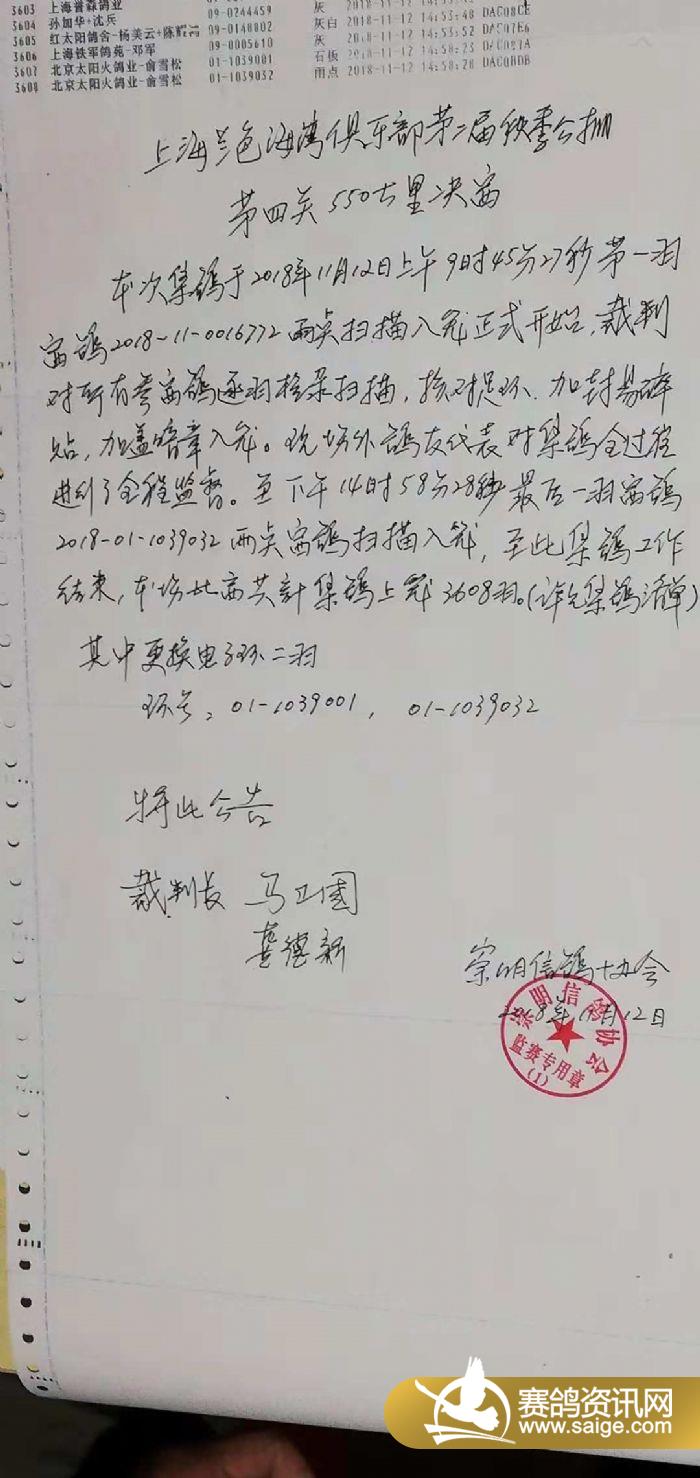 3603 上海普森鸽业 09-0244459 灰 2018-11-12
3604 孙如华+沈兵 09-0148802 灰白 2018-11-12 14:53:48 DAC08CE
3605 红太阳鸽舍-杨美云+陈辉 灰 2018-11-12 14:53:52 DAC07E6
3606 上海铁军鸽苑-邓军 09-0005610 灰 2018-11-12 14:58:23
3607 北京太阳火鸽业-俞雪松 01-1039001 石板 2018-11-12 14:58:20
3608 北京太阳火鸽业-俞雪松 01-1039032 雨点 2018-11-12 14:58:28 DAC0BDB
上海兰色海湾俱乐部第二届秋季公棚
第四关550公里决赛
本次集鸽于2018年11月12日上午9时45分27秒第一羽
赛鸽2018-11-0016772雨点扫描入笼正式开始,裁判
对所有参赛鸽逐羽检录扫描,核对足环、加封易碎
贴,加盖暗章入笼。现场外鸽友代表对集鸽全过程
进行了全程监督。至下午14时58分28秒最后一羽赛鸽
2018-01-1039032雨点赛鸽扫描入笼,至此集鸽工作
结束,本场比赛共计集鸽上笼3608羽。(详见集鸽清单)
其中更换电子环二羽
环号:01-1039001, 01-1039032
特此公告
裁判长 马卫国
龚德新
崇明信鸽协会
2018年11月12日
崇明信鸽协会
监赛专用章
(1)
赛鸽资讯网
www.saige.com